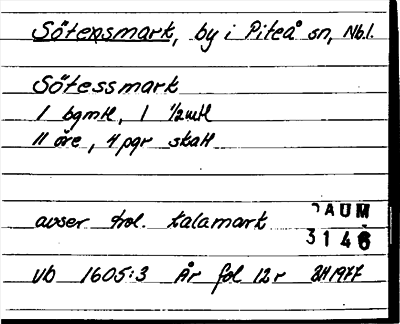 Sötensmark, by i Piteå sn, Nb.l.
Sötessmark
1 bgmtl, 1 1/2mtl
11 öre, 4 pgr skatt
avser trol. talamark
DAUM
3146
Vb 1605:3 År fol 12 r BH 1977